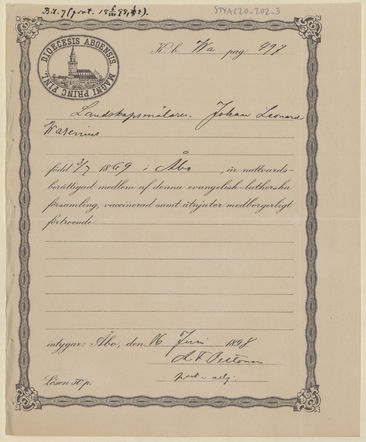 STYA(20-202-3
K. b. Wa pag. 497
DIOECESIS ABOENSIS MAGNI PRINC FINL
Landskapsmålaren Johan Leonard
Warenius
född 3/7 1869 i Åbo, är nattvards-
berättigad medlem af denna evangelisk-lutherska
församling, vaccinerad samt åtnjuter medborgerligt
förtroende
intygar: Åbo, den 16 Juni 1898
Lösen 50 p.